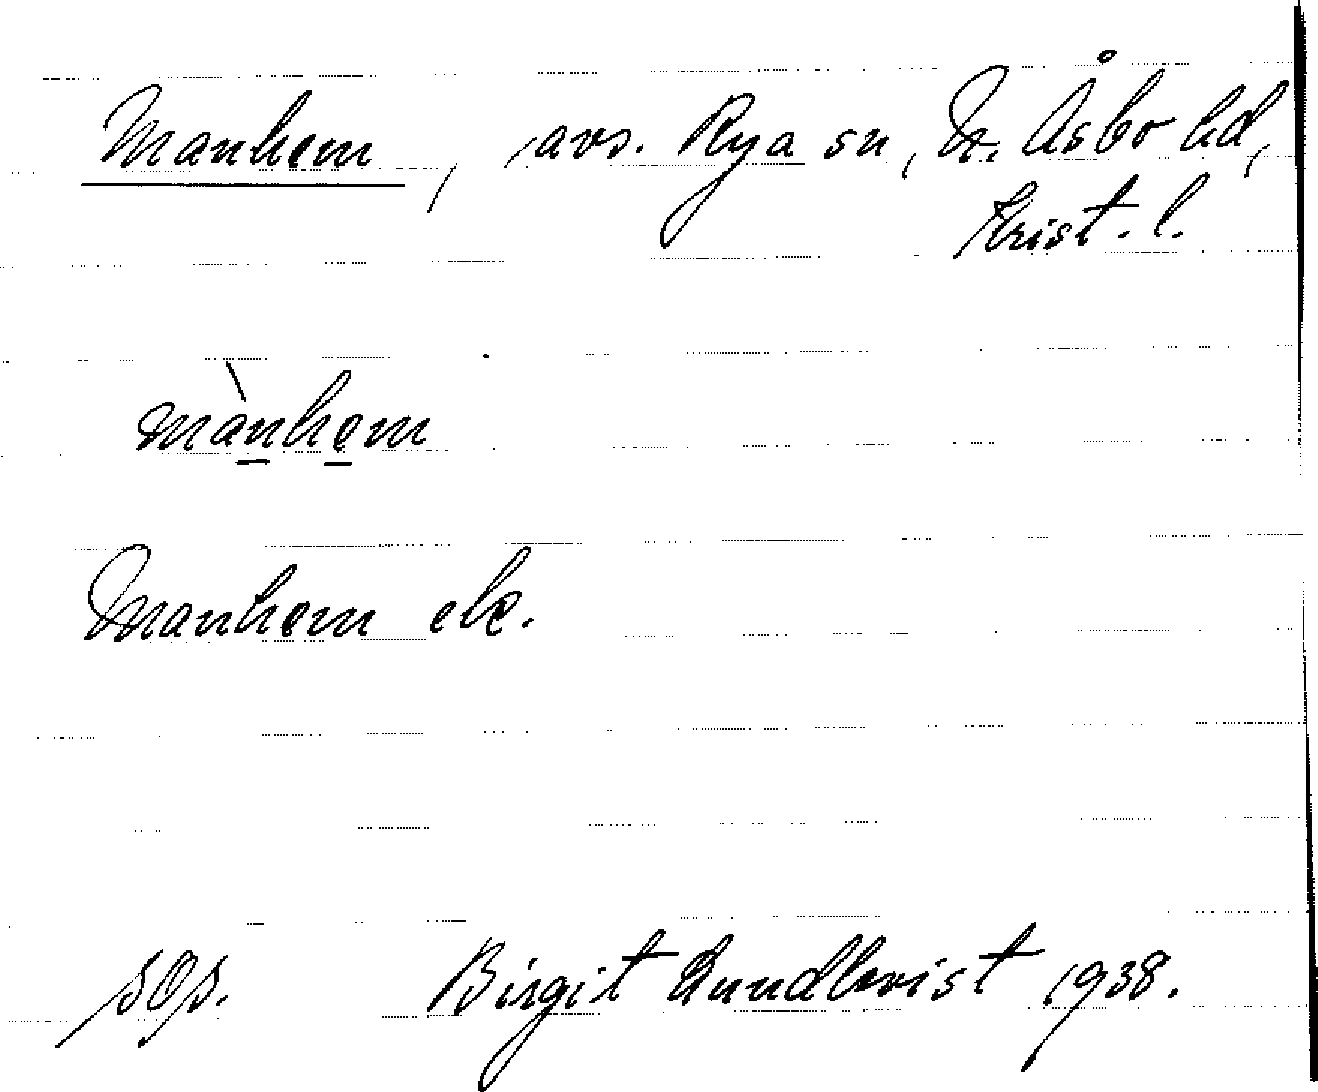 Manhem, avs. Rya sn, N. Åsbo hd,
Krist. l.
mànhem
Manhem ek.
sOs. Birgit Lundkvist 1938.